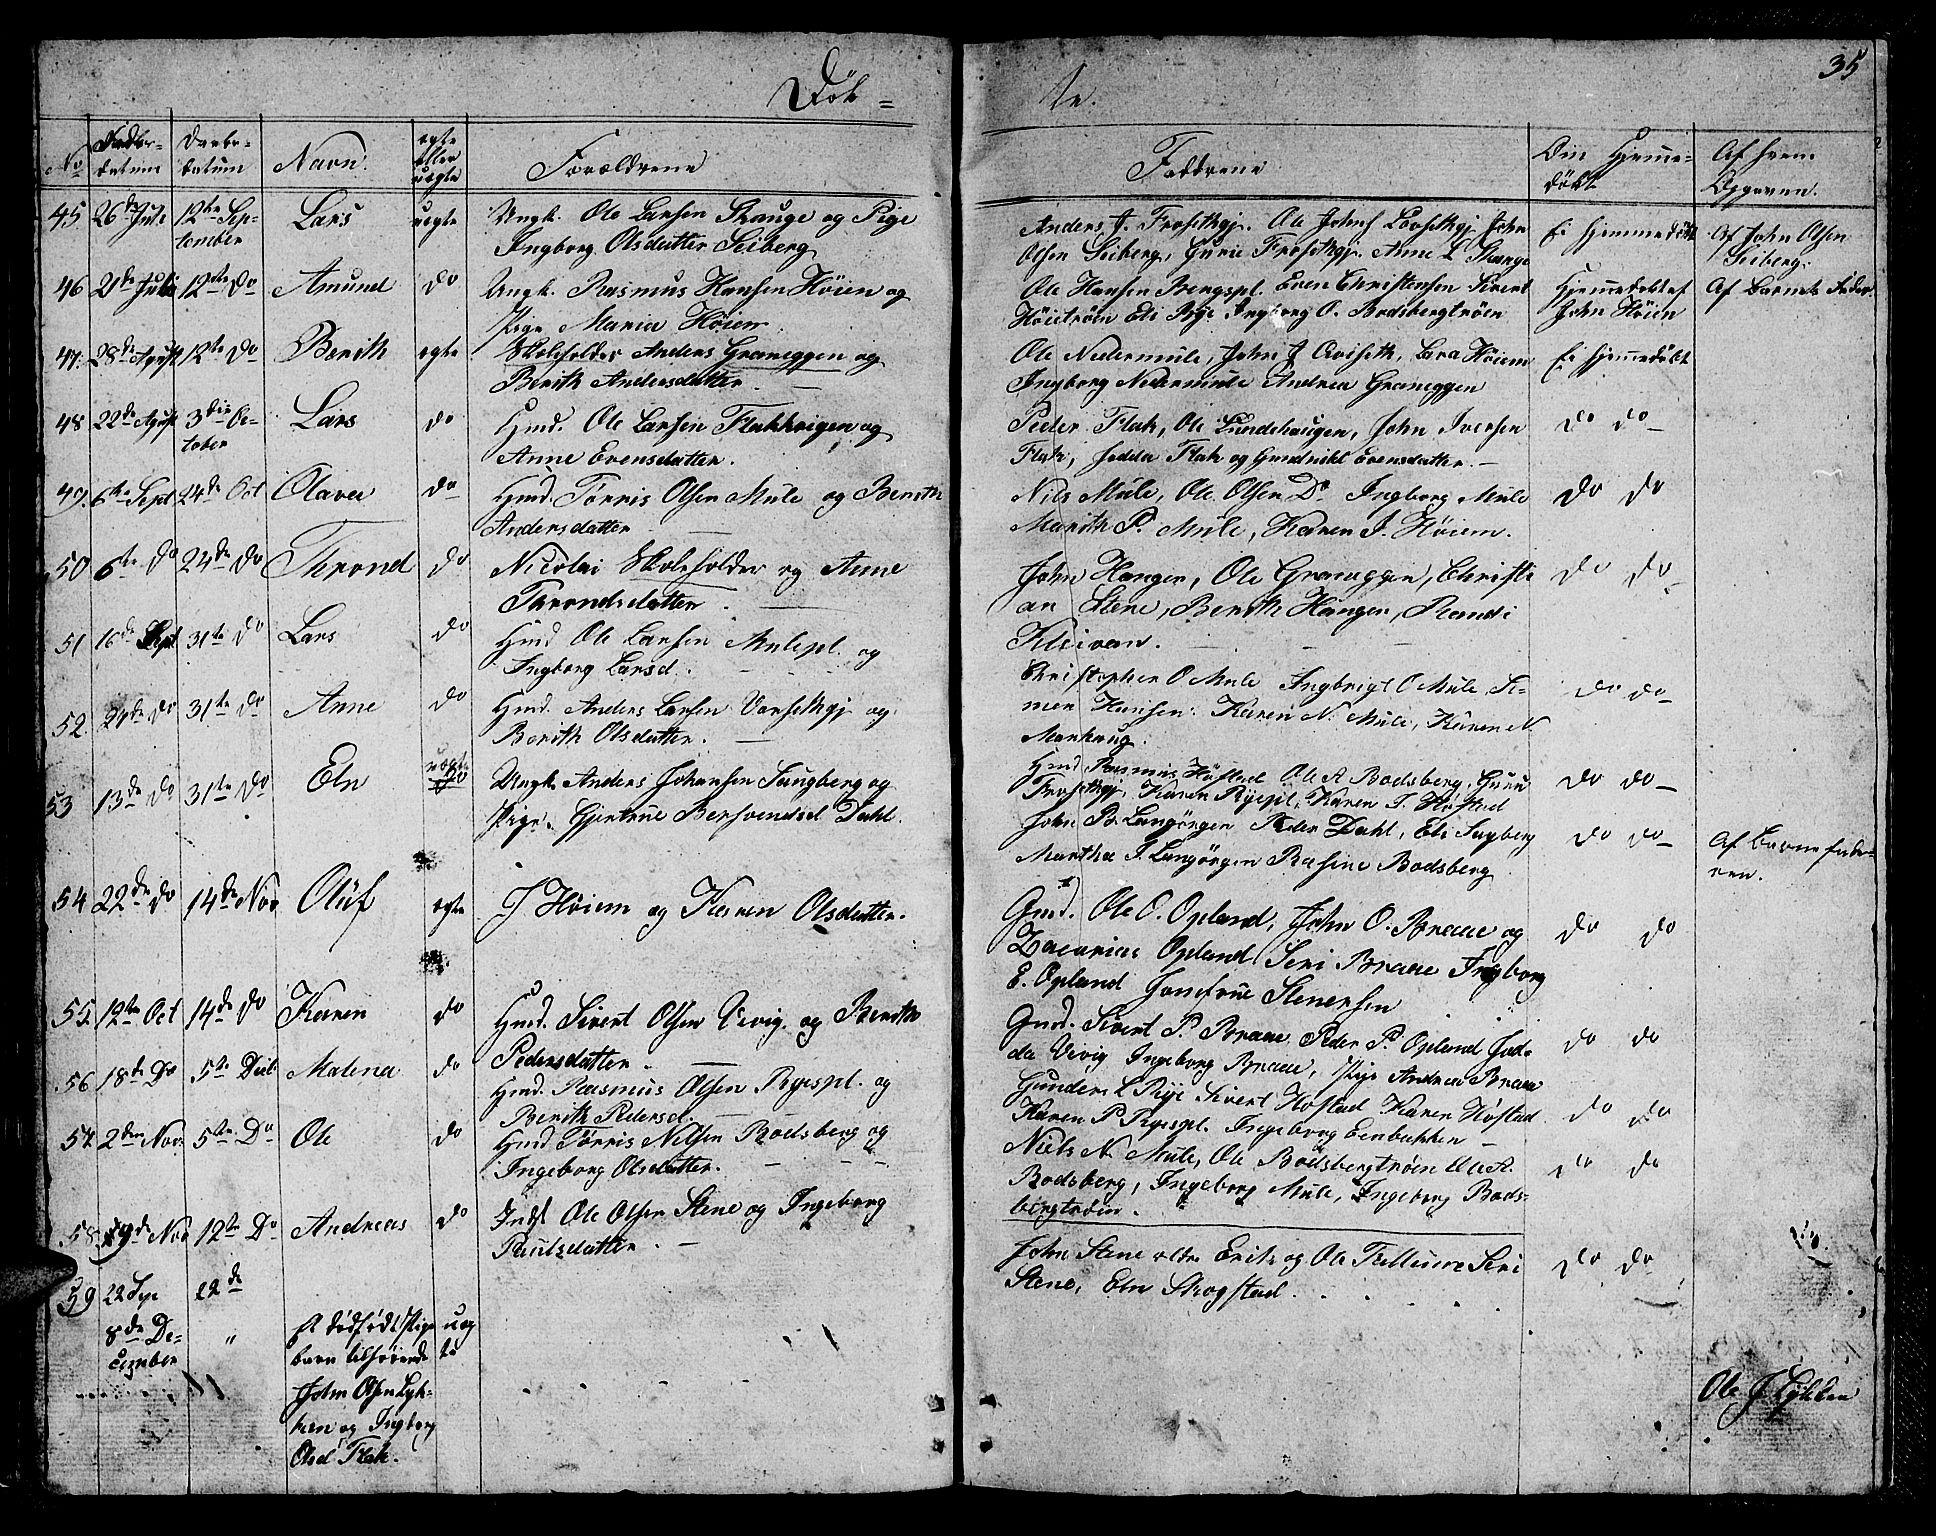 35
Døb = te.
No
Føds-
datum
Daabs-
datum
Navn.
egte
eller
uegte
Forældrene
Faddrene
Om Hjemme-
døbt
Af hvem
Opgiven.
45 26de Juli 12te Sep-
tember
Lars uegte Ungk. Ole Larsen Skauge og Pige
Ingborg Olsdatter Seiberg
Anders J. Frosethgj. Ole Johns Lorsethgj John
Olsen Seiberg, Gurie Frosethgj. Anne L Skauge
Ei Hjemmedøbt
Af John Olsen
Seiberg.
46 21de Julii 12te Do Amund do Ungk. Rasmus Hansen Höien og
Pige Maria Höiem
Ole Hansen Rengspl. Even Christensen Sivert
Höietröen Eli Rye Ingborg O. Bodsbergtröen
Hjemmedøbt af
John Höien
Af Barnets Fader
47. 28de August 12te Do Berith egte Skoleholder Anders Graneggen og
Berith Andersdatter
Ole Nedermule, John J Qviseth, Lars Höiem
Ingborg Nedermule Andrea Graneggen
Ei Hjemmedøbt
48 22de Agust 3die Oc-
tober
Lars do Hmd. Ole Larsen Flakkrigen og
Anne Evensdatter.
Peder Flak, Ole Lundehaugen, John Iversen
Flak, Hedda Flak og Gundnikl Evensdatter.
Do Do
49. 6te Sept 24de Oct Olava do Hmd. Törris Olsen Mule og Berith
Andersdatter
Nils Mule, Ole Olsen Do Ingborg Mule
Marith P. Mule, Karen J. Höiem.
Do Do
50 6te Do 24de Do Thrond do Nicolai Skoleholder og Anne
Throndsdatter.
John Hangen, Ole Graneggen, Christi
an Stene, Berith Hangen, Randi
Kleivan.
Do Do
51 16de Sept 31te Do Lars do Hmd Ole Larsen Mulepl. og
Ingborg Larsd.
Christopher O Mule Ingbrigt O Mule Si-
mon Hansen. Karen N. Mule, Karen N.
Markaug
Do Do
52. 24de Do 31te Do Anne do Hmd. Anders Larsen Vorsethgj og
Berith Olsdatter.
Hmd Rasmus Höstad Ole A Bodsberg, Guru
Frosethgj. Karen Ryepl, Karen T. Höstad
Do Do
53 13de Do 31te Do Eln uegte
Do
Ungk. Anders Johansen Saugberg og
Pige. Gjertrue Bersvendsd Dahl.
John B. Langörgen Peder Dahl, Eli Sagberg
Martha J. Langörgen Rasine Bodsberg
Do Do
Af Barnefade-
ren.
54 22de Do 14de Nov Oluf egte J Höiem og Karen Olsdatter.
Gmd. Ole O. Opland, John O. Braae og
Zacarias Opland Seri Braae Ingborg
E. Opland Jomfrue Stenersen
Do Do
55. 12te Oct 14de Do Karen do Hmd. Sivert Olsen Vivig. og Berith
Pedersdatter.
Gmd. Sivert P. Braae, Peder P. Opland Hed-
da Vivig Ingeborg Braae, Pige Andrea Braae
Do Do
56 18de Do 5te Decb. Malena do Hmd. Rasmus Olsen Ryespl. og
Berith Pedersd.
Gunder L Rye Sivert Höstad Karen Höstad
Karen P Ryespl. Ingeborg Eenbakken
Do Do
57. 2den Nov. 5te Do Ole do Hmd Törris Nilsen Bodsberg og
Ingeborg Olsdatter.
Niels N. Mule, Ole Bodsbergtröen Ole A.
Bodsberg, Ingeborg Mule, Ingeborg Bods-
bergtröen.
Do Do
58 19de Nov 12te Do Andreas do Inds Ole Olsen Stene og Ingeborg
Paulsdatter.
John Stene eldre Erik og Ole Tellune Seri
Stene, Eln Skogstad.
Do Do
59 22 Sep 22de
8de De-
cember
"
Et dödfödt Pige
barn tilhörende
John Olsen Lyk-
ken og Ingborg
Olsd Flak.
ueg
te
Ole J Lykken